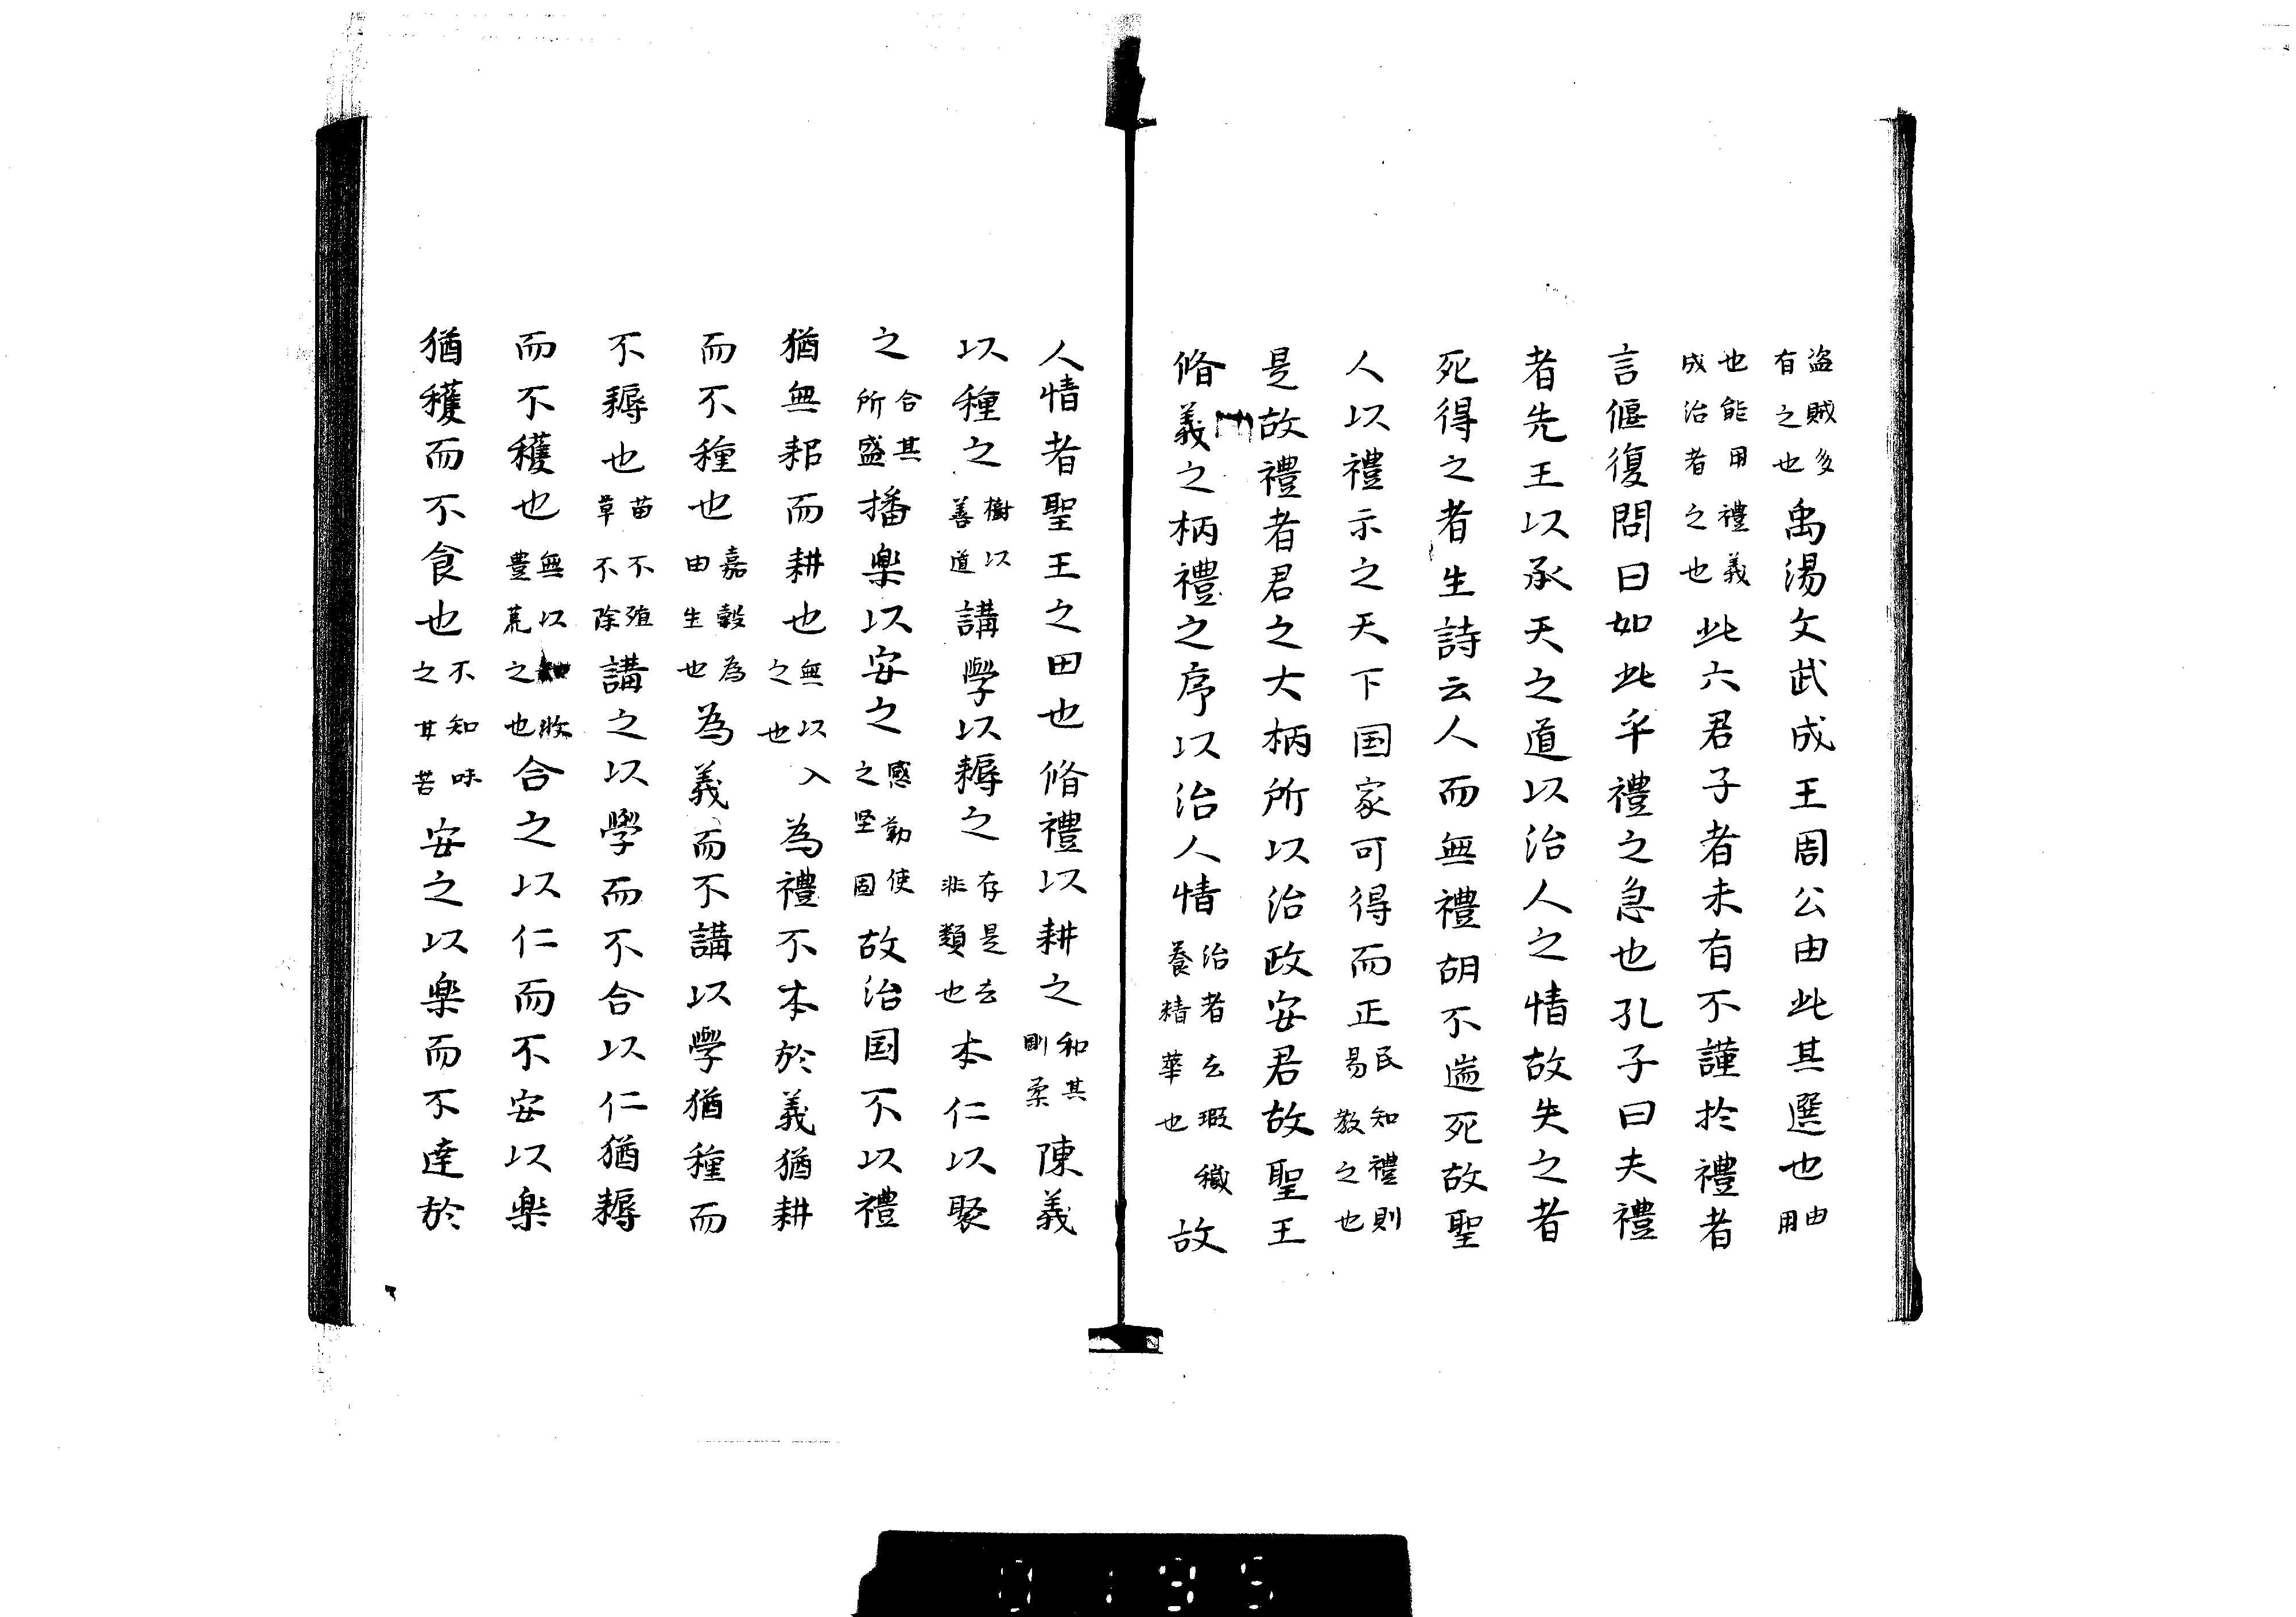 盗賊多有之也禹湯文武成王周公由此其選也由用
也能用禮義成治者之也此六君子者未有不謹扵禮者
言偃復問曰如此乎禮之急也孔子曰夫禮
者先王以承天之道以治人之情故失之者
死得之者生詩云人而無禮胡不遄死故聖
人以禮示之天下国家可得而正民知禮則易教之也
是故禮者君之大柄所以治政安君故聖王
脩義之柄禮之序以治人情治者去瑕穢養精華也故
人情者聖王之田也脩禮以耕之和其剛柔陳義
以種之樹以善道講學以耨之存是去非類也本仁以聚
之合其所盛播楽以安之感動使之堅固故治国不以禮
猶無耜而耕也無以入之也為禮不本於義猶耕
而不種也嘉穀為由生也為義而不講以學猶種而
不耨也苗不殖草不除講之以學而不合以仁猶耨
而不穫也無以知收豊荒之也合之以仁而不安以楽
猶穫而不食也不知味之甘苦安之以楽而不達於
0199